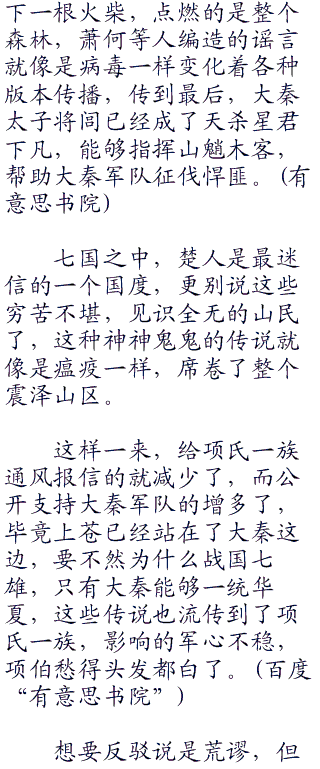 下一根火柴，点燃的是整个
森林，萧何等人编造的谣言
就像是病毒一样变化着各种
版本传播，传到最后，大秦
太子将闾已经成了天杀星君
下凡，能够指挥山魈木客，
帮助大秦军队征伐悍匪。(有
意思书院)
七国之中，楚人是最迷
信的一个国度，更别说这些
穷苦不堪，见识全无的山民
了，这种神神鬼鬼的传说就
像是瘟疫一样，席卷了整个
震泽山区。
这样一来，给项氏一族
通风报信的就减少了，而公
开支持大秦军队的增多了，
毕竟上苍已经站在了大秦这
边，要不然为什么战国七
雄，只有大秦能够一统华
夏，这些传说也流传到了项
氏一族，影响的军心不稳，
项伯愁得头发都白了。(百度
“有意思书院”)
想要反驳说是荒谬，但